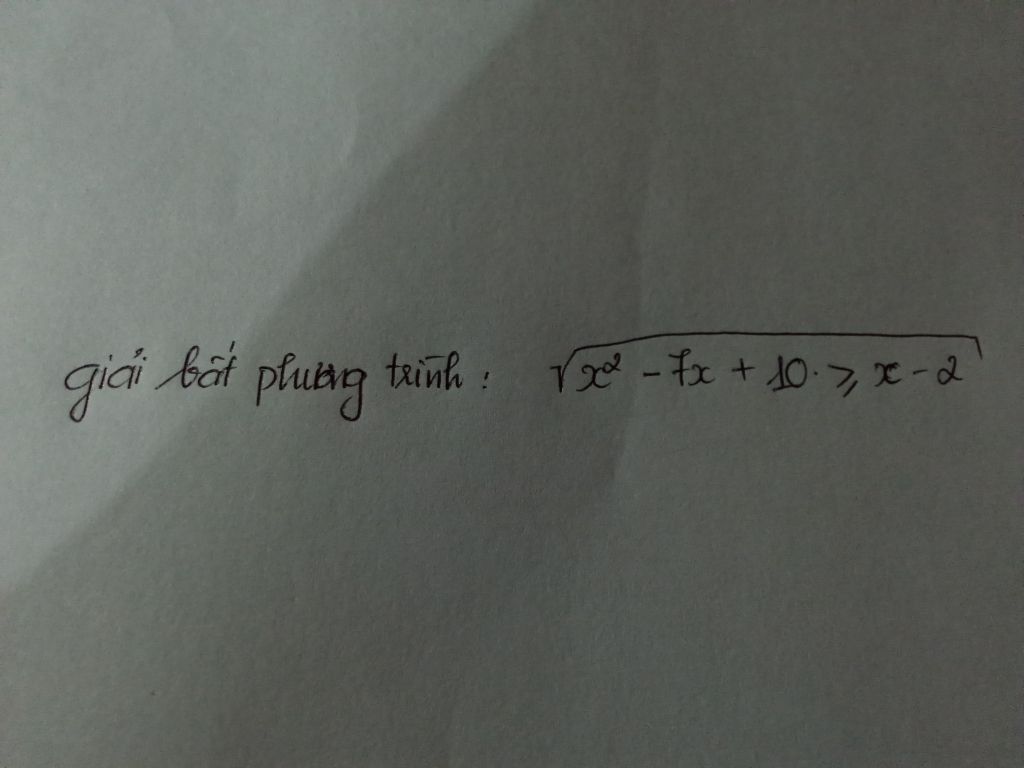 giải bất phương trình: √(x² - 7x + 10. ⩾ x - 2)